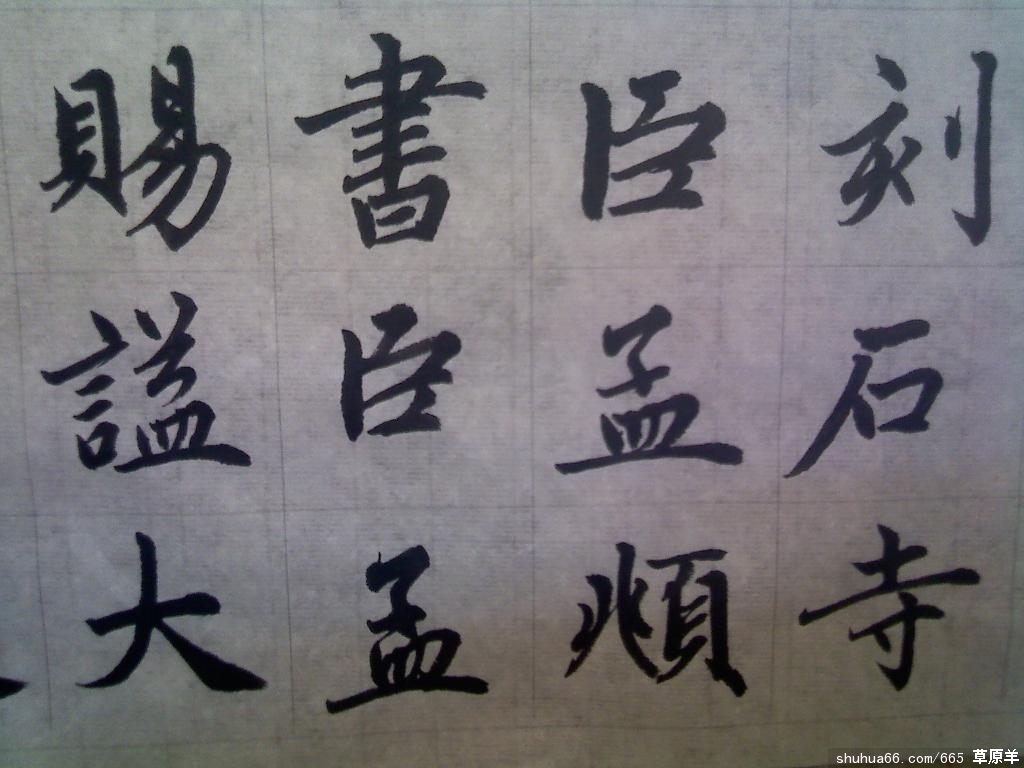 刻石寺
臣孟頫
書臣孟
賜謚大
shuhua66.com/665 草原羊